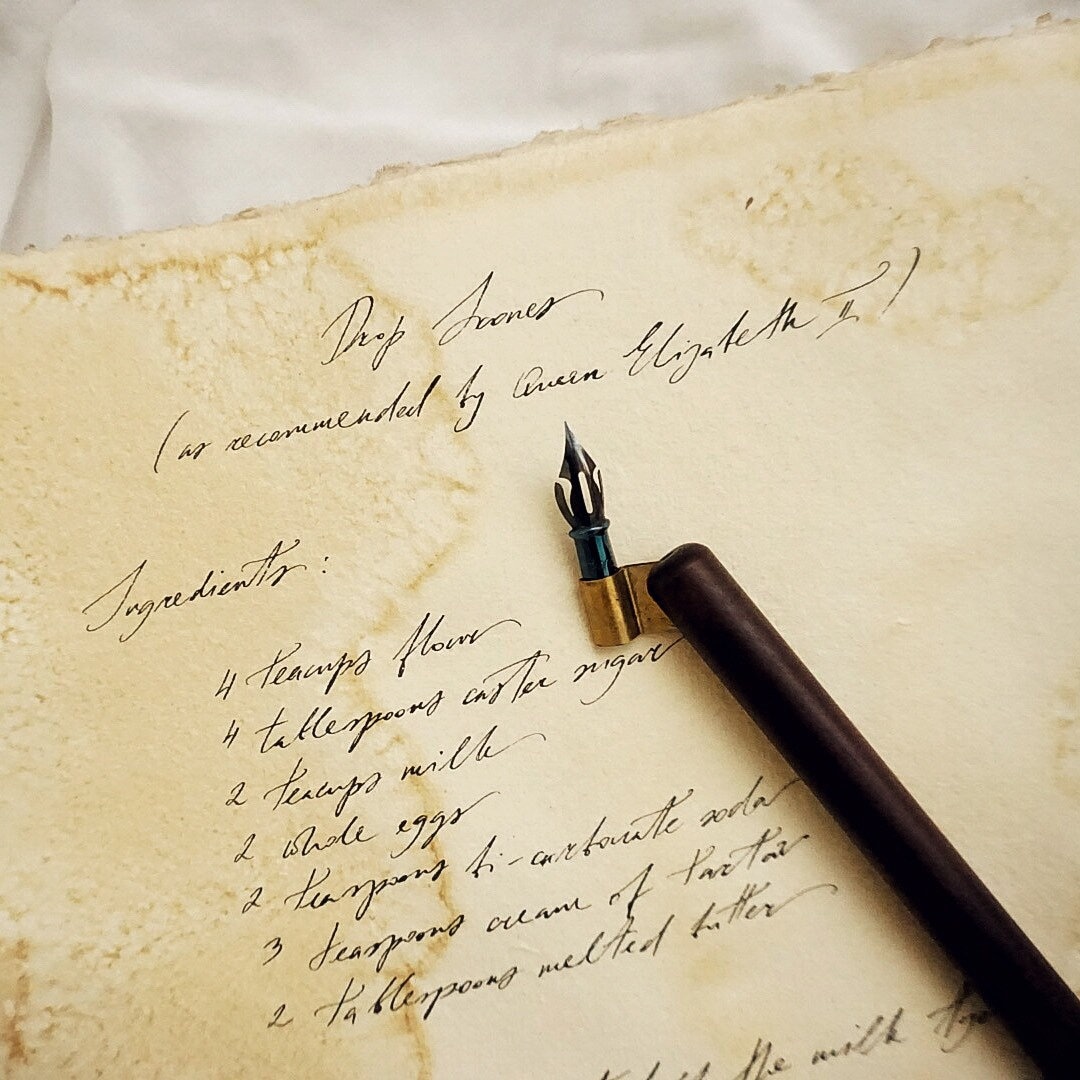 Drop Scones
(as recommended by Queen Elizabeth II)
Ingredients:
4 teacups flour
4 tablespoons caster sugar
2 teacups milk
2 whole eggs
2 teaspoons bi-carbonate soda
3 teaspoons cream of tartar
2 tablespoons melted butter
the milk